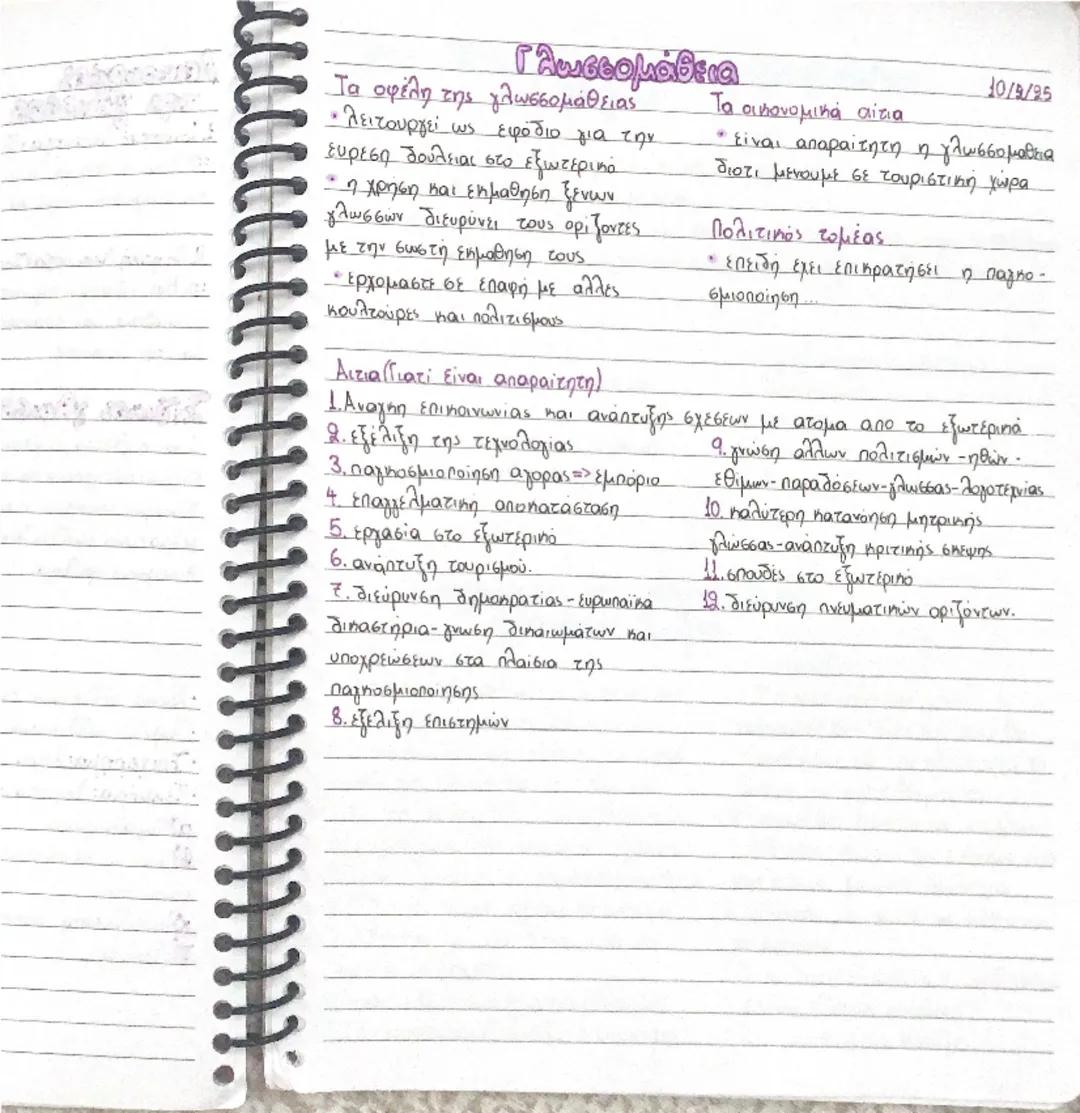 Γλωσσομάθεια
10/9/25
Τα οφέλη της γλωσσομάθειας
• λειτουργεί ως εφόδιο για την
εύρεση δουλειας στο εξωτερικό
• η χρηση και εκμαθηση ξενων
γλωσσών διευρύνει τους οριζοντες
με την σωστή εκμαθηση τους
• ερχομαστε σε επαφή με αλλες
κουλτούρες και πολιτισμους
Τα οικονομικά αίτια
• είναι απαραίτητη η γλωσσομαθεια
διοτι μενουμε σε τουριστική χώρα
Πολιτικός τομέας
• επειδή εχει επικρατήσει η παγκο-
σμιοποίηση...
Αιτια (Γιατί είναι απαραίτητη)
1. Αναγκη επικοινωνιας και ανάπτυξης σχεσεων με ατομα απο το εξωτερικό
2. εξέλιξη της τεχνολογίας
3. παγκοσμιοποίηση αγορας => εμπόριο
4. επαγγελματική αποκατάσταση
5. εργασία στο εξωτερικό
6. ανάπτυξη τουρισμού.
7. διεύρυνση δημοκρατίας - ευρωπαϊκα
δικαστήρια - γνωση δικαιωμάτων και
υποχρεώσεων στα πλαίσια της
παγκοσμιοποίησης
8. εξέλιξη επιστημών
9. γνώση αλλων πολιτισμών - ηθών -
εθιμων - παραδόσεων - γλωσσας - λογοτεχνίας
10. καλύτερη κατανόηση μητρικής
γλώσσας - ανάπτυξη κριτικής σκεψης
11. σπουδές στο εξωτερικό
12. διεύρυνση πνευματικών οριζόντων.